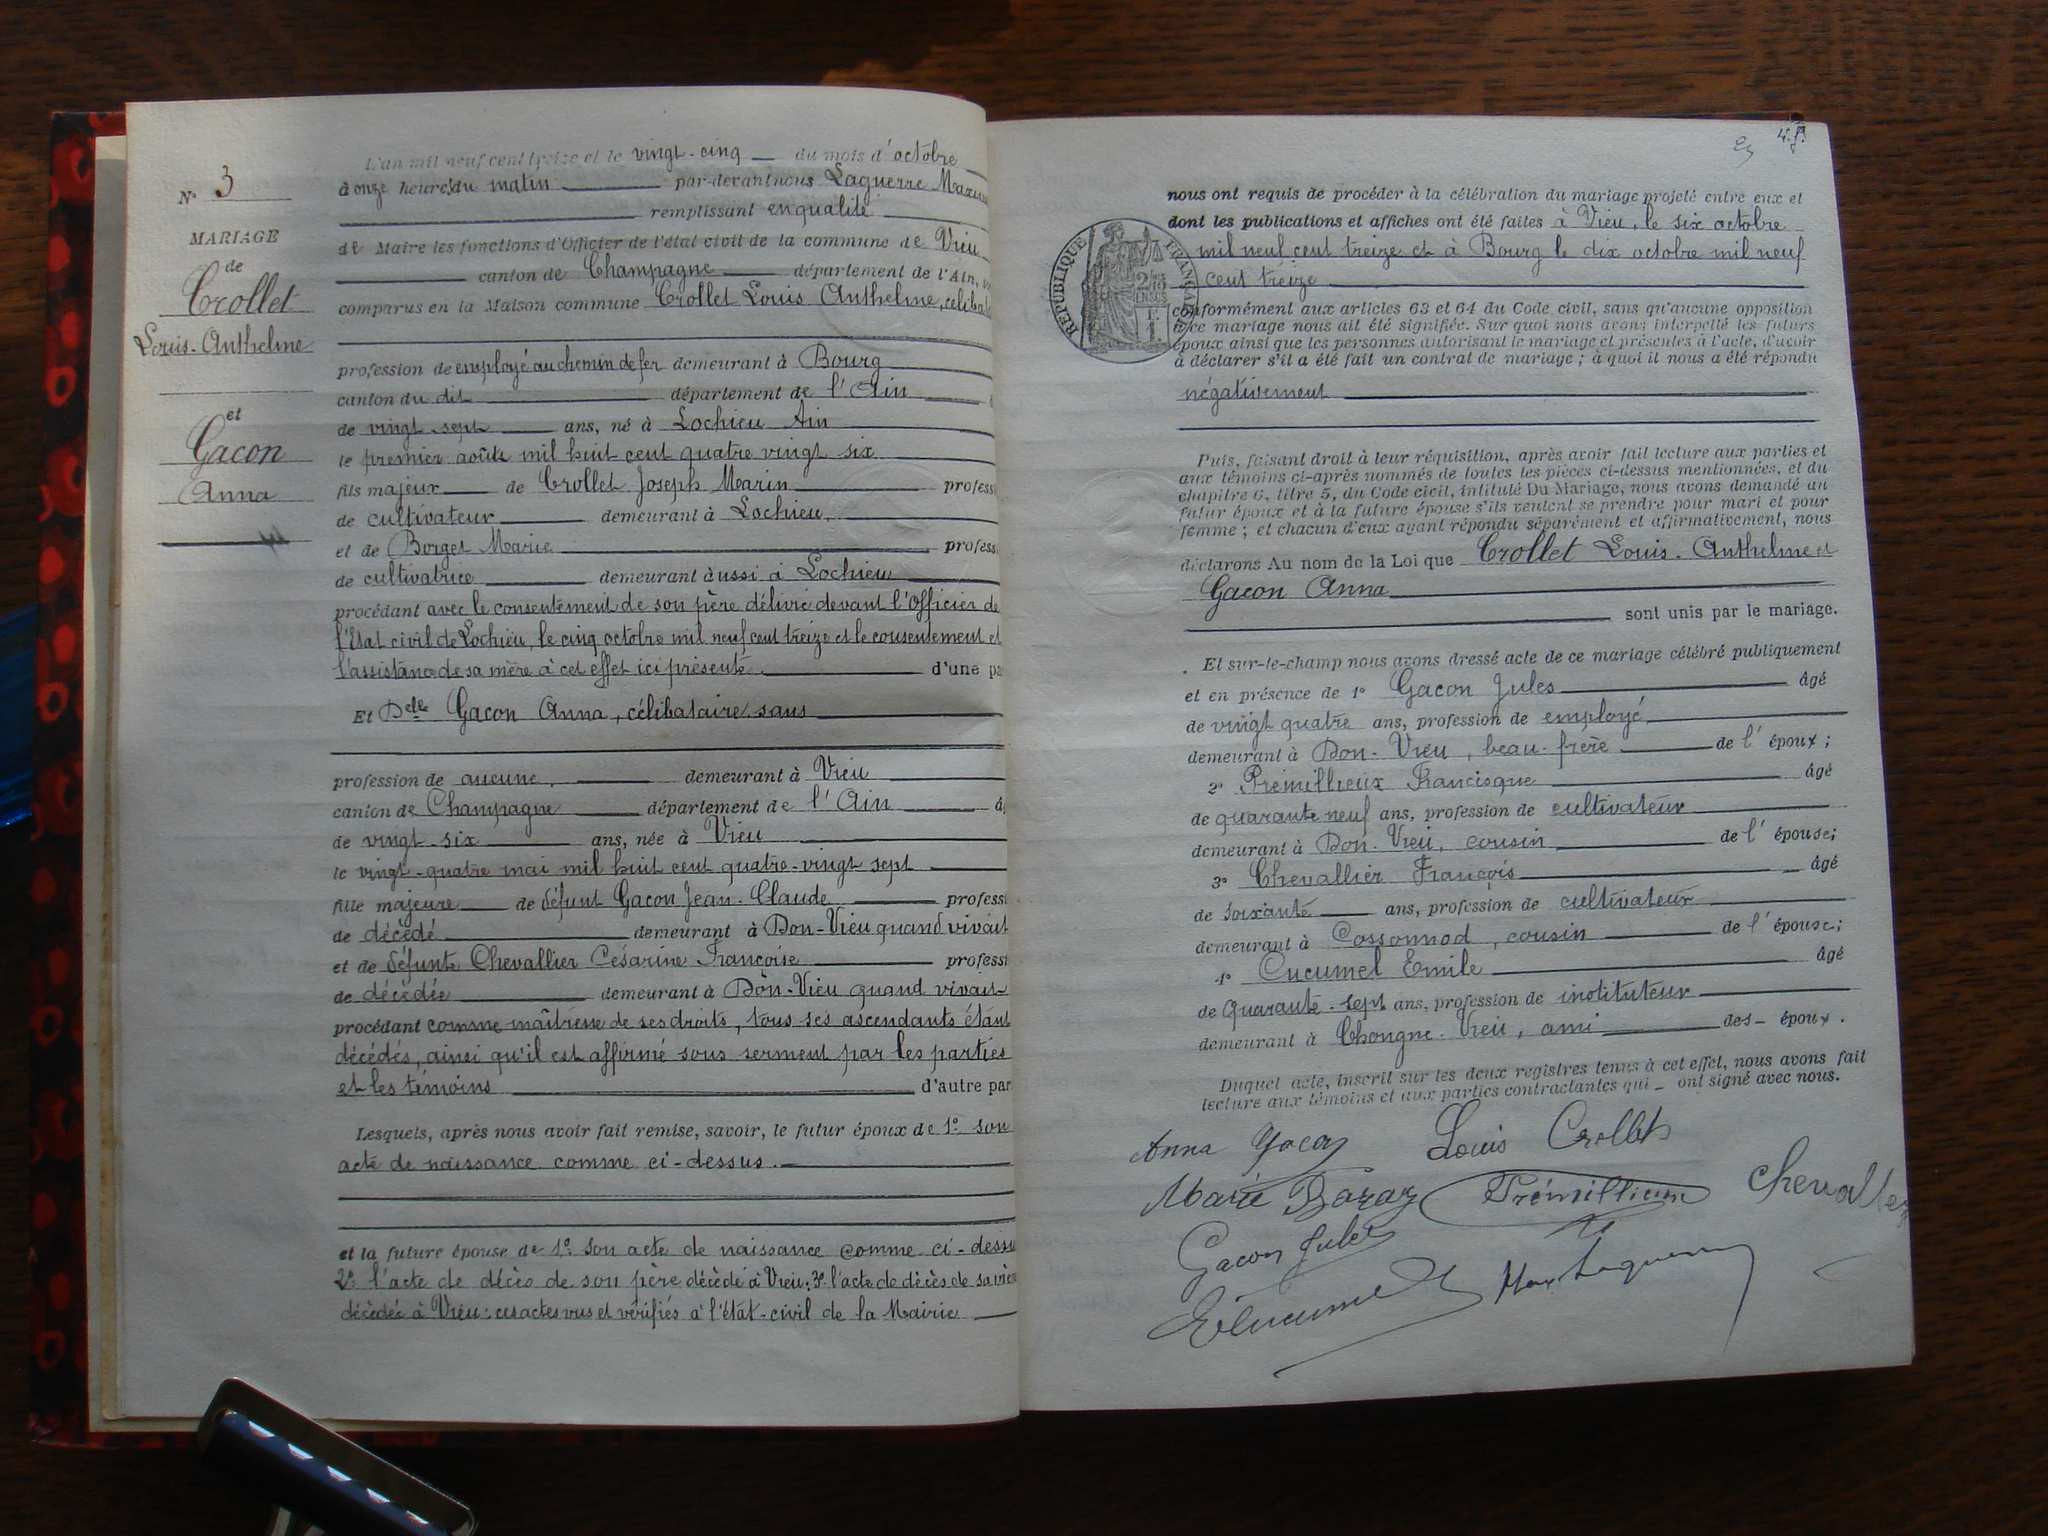 N° 3
MARIAGE
de
Crollet
Louis-Anthelme
et
Gacon
Anna
L'an mil neuf cent treize et le vingt-cinq du mois d'octobre
à onze heures du matin par-devant nous Laguerre
remplissant en qualité
de Maire les fonctions d'Officier de l'état civil de la commune de Vieu
canton de Champagne département de l'Ain,
comparus en la Maison commune Crollet Louis Anthelme, céliba
profession de employé au chemin de fer demeurant à Bourg
canton du dit département de l'Ain
de vingt-sept ans, né à Lochieu Ain
le premier août mil huit cent quatre vingt six
fils majeur de Crollet Joseph Marin profess
de cultivateur demeurant à Lochieu,
et de Marie profess
de cultivatrice demeurant aussi à Lochieu
procédant avec le consentement de son père délivré devant l'Officier de
l'Etat civil de Lochieu, le cinq octobre mil neuf cent treize et le consentement et
l'assistance de sa mère à cet effet ici présente. d'une pa
Et Delle Gacon Anna, célibataire, sans
profession de aucune, demeurant à Vieu
canton de Champagne département de l'Ain â
de vingt-six ans, née à Vieu
le vingt-quatre mai mil huit cent quatre-vingt sept
fille majeure de défunt Gacon Jean-Claude professi
de décédé demeurant à Don-Vieu quand vivait
et de défunte Chevallier Césarine Françoise professi
de décédée demeurant à Don-Vieu quand vivait
procédant comme maîtresse de ses droits, tous ses ascendants étant
décédés, ainsi qu'il est affirmé sous serment par les parties
et les témoins d'autre par
Lesquels, après nous avoir fait remise, savoir, le futur époux de 1° son
acte de naissance comme ci-dessus.
et la future épouse de 1° son acte de naissance comme ci-dessu
2° l'acte de décès de son père décédé à Vieu; 3° l'acte de décès de sa mère
décédée à Vieu; ces actes vus et vérifiés à l'état-civil de la Mairie
RÉPUBLIQUE FRANÇAISE
nous ont requis de procéder à la célébration du mariage projeté entre eux et
dont les publications et affiches ont été faites à Vieu, le six octobre
mil neuf cent treize et à Bourg le dix octobre mil neuf
cent treize
conformément aux articles 63 et 64 du Code civil, sans qu'aucune opposition
à ce mariage nous ait été signifiée. Sur quoi nous avons interpellé les futurs
époux ainsi que les personnes autorisant le mariage et présentes à l'acte, d'avoir
à déclarer s'il a été fait un contrat de mariage; à quoi il nous a été répondu
négativement
Puis, faisant droit à leur réquisition, après avoir fait lecture aux parties et
aux témoins ci-après nommés de toutes les pièces ci-dessus mentionnées, et du
chapitre 6, titre 5, du Code civil, intitulé Du Mariage, nous avons demandé au
futur époux et à la future épouse s'ils veulent se prendre pour mari et pour
femme; et chacun d'eux ayant répondu séparément et affirmativement, nous
déclarons Au nom de la Loi que Crollet Louis-Anthelme et
Gacon Anna
sont unis par le mariage.
Et sur-le-champ nous avons dressé acte de ce mariage célébré publiquement
et en présence de 1° Gacon Jules âgé
de vingt quatre ans, profession de employé
demeurant à Don-Vieu, beau-frère de l'époux;
2° Prémillieux Francisque âgé
de quarante neuf ans, profession de cultivateur
demeurant à Don-Vieu, cousin de l'épouse;
3° Chevallier François âgé
de soixante ans, profession de cultivateur
demeurant à Cossonnod, cousin de l'épouse;
4° Cucumel Emile âgé
de quarante-sept ans, profession de instituteur
demeurant à Chongne-Vieu, ami des époux.
Duquel acte, inscrit sur les deux registres tenus à cet effet, nous avons fait
lecture aux témoins et aux parties contractantes qui ont signé avec nous.
Anna Gacon Louis Crollet
Marie Prémillieux Chevallier
Gacon Jules
E Cucumel Max Laguerre